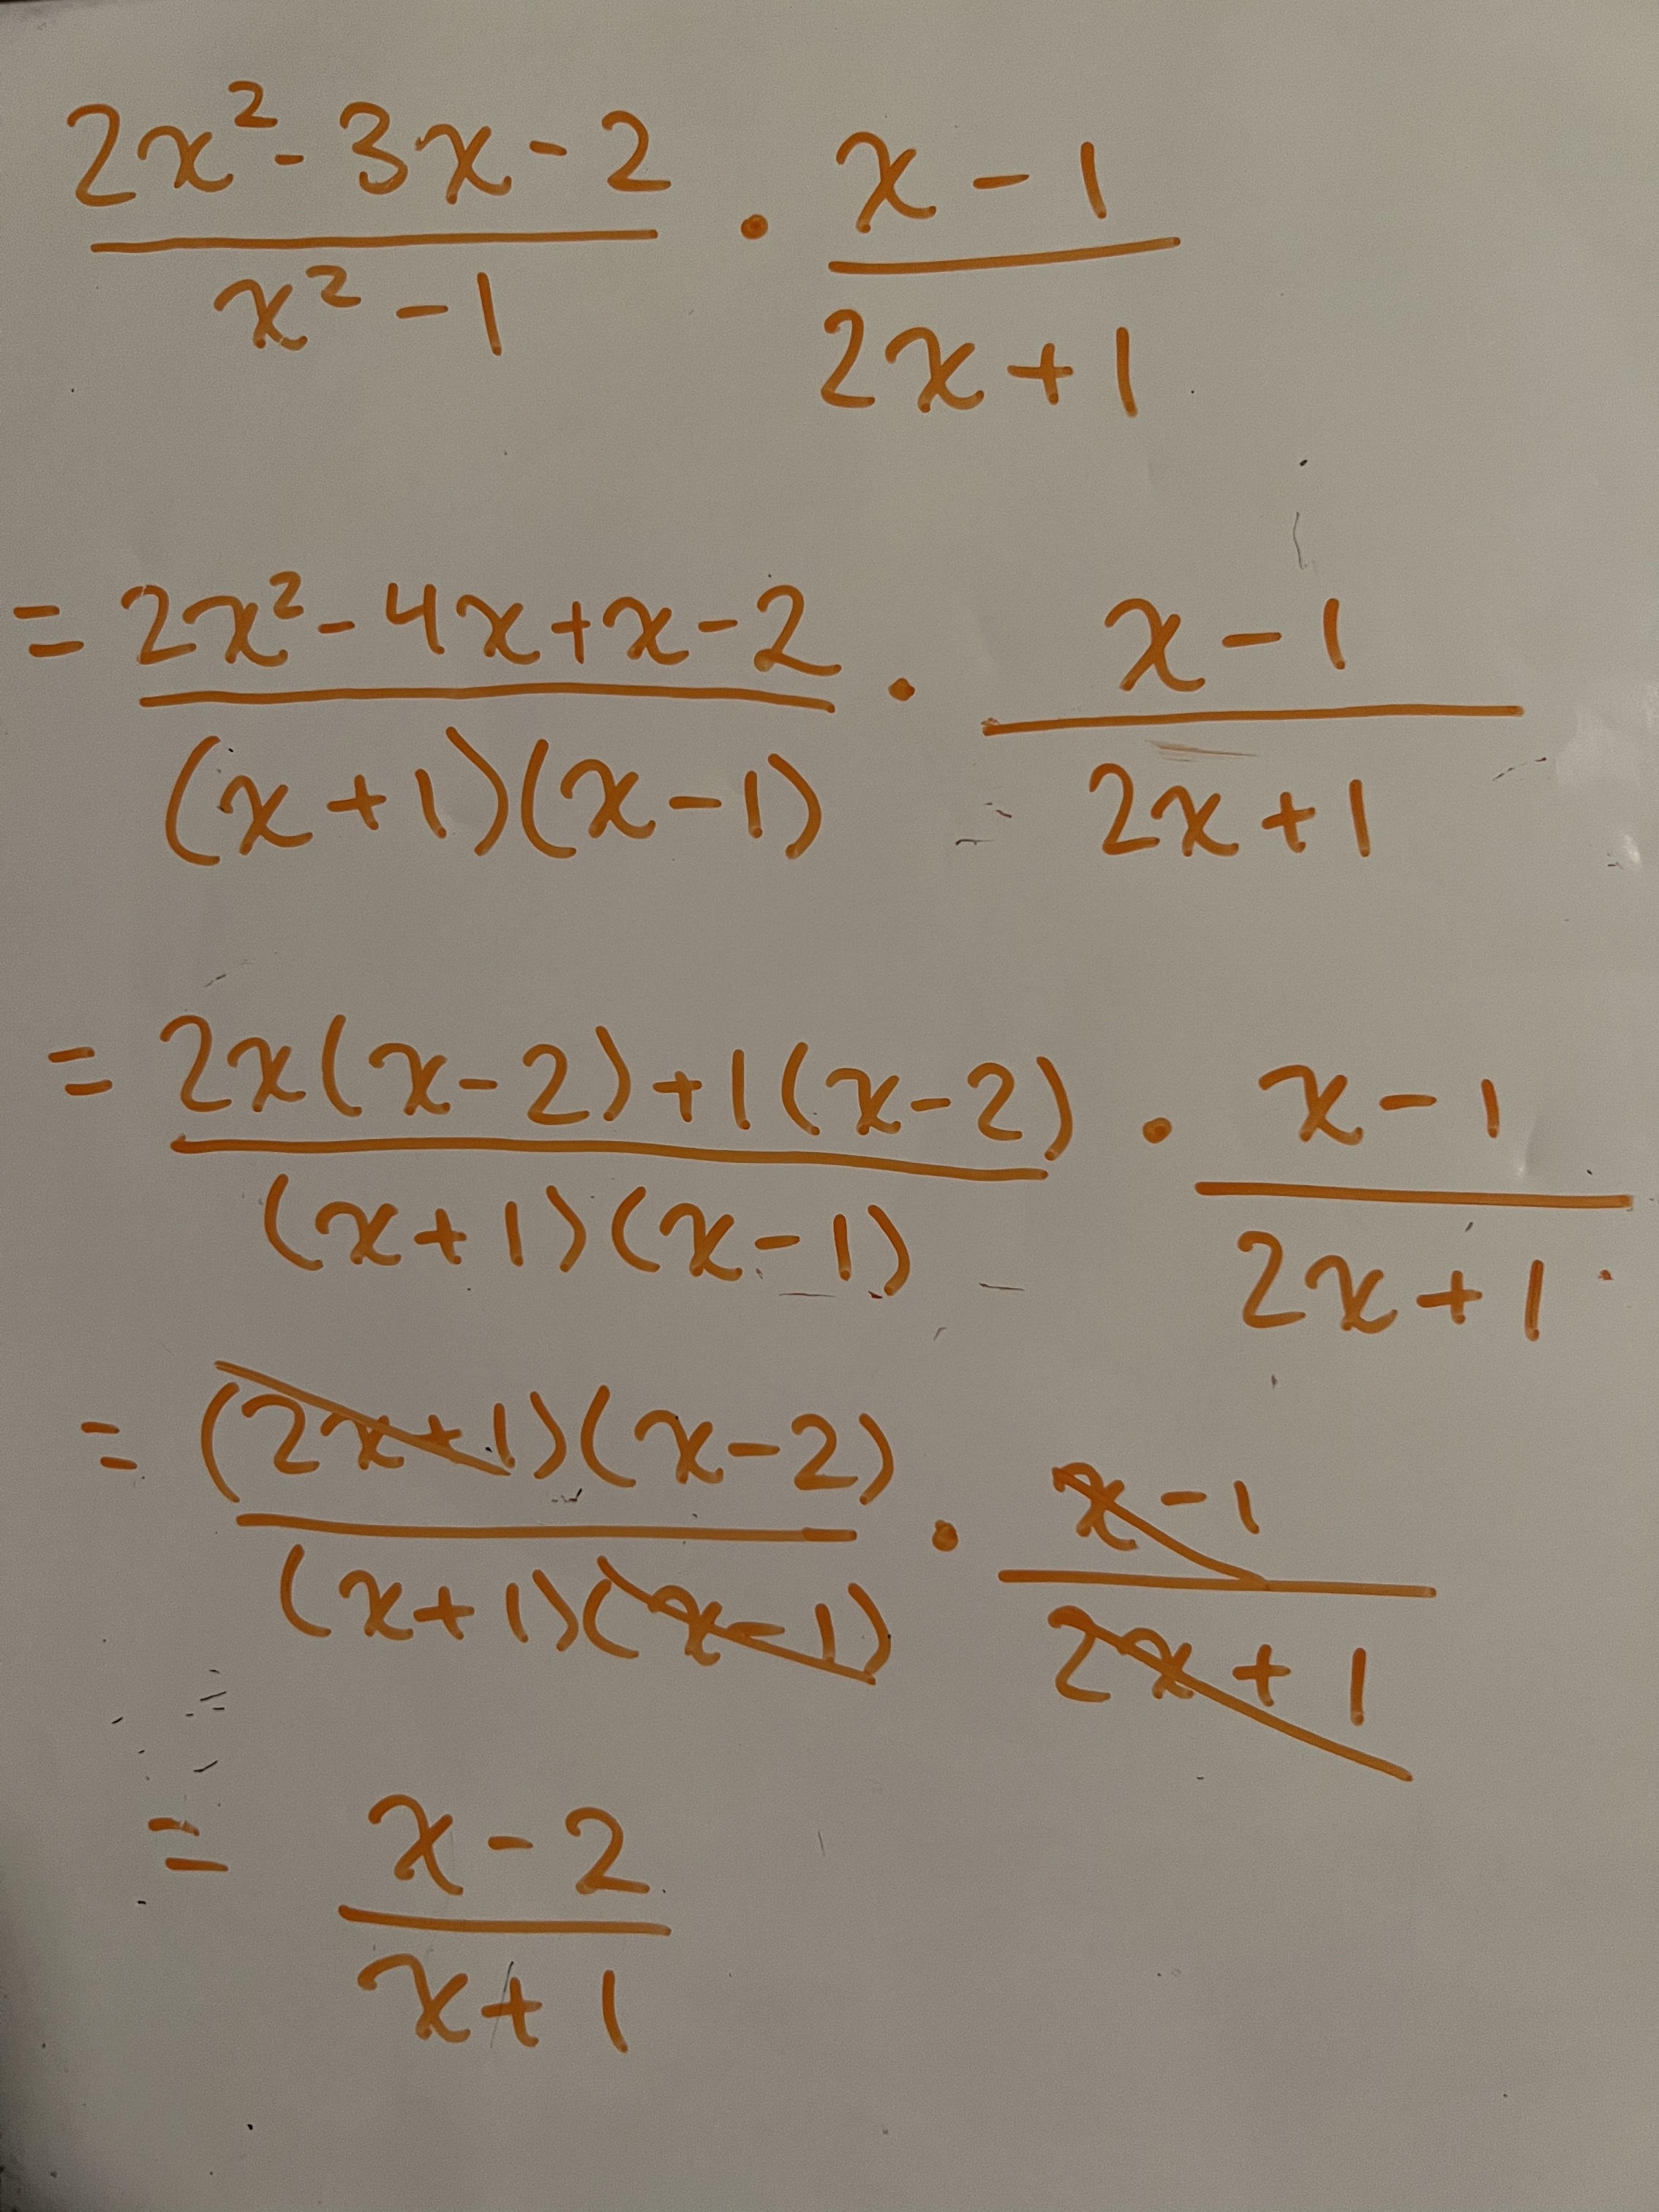 2x² - 3x - 2 / x² - 1 · x - 1 / 2x + 1
= 2x² - 4x + x - 2 / (x + 1)(x - 1) · x - 1 / 2x + 1
= 2x(x - 2) + 1(x - 2) / (x + 1)(x - 1) · x - 1 / 2x + 1
= (2x + 1)(x - 2) / (x + 1)(x - 1) · x - 1 / 2x + 1
= x - 2 / x + 1